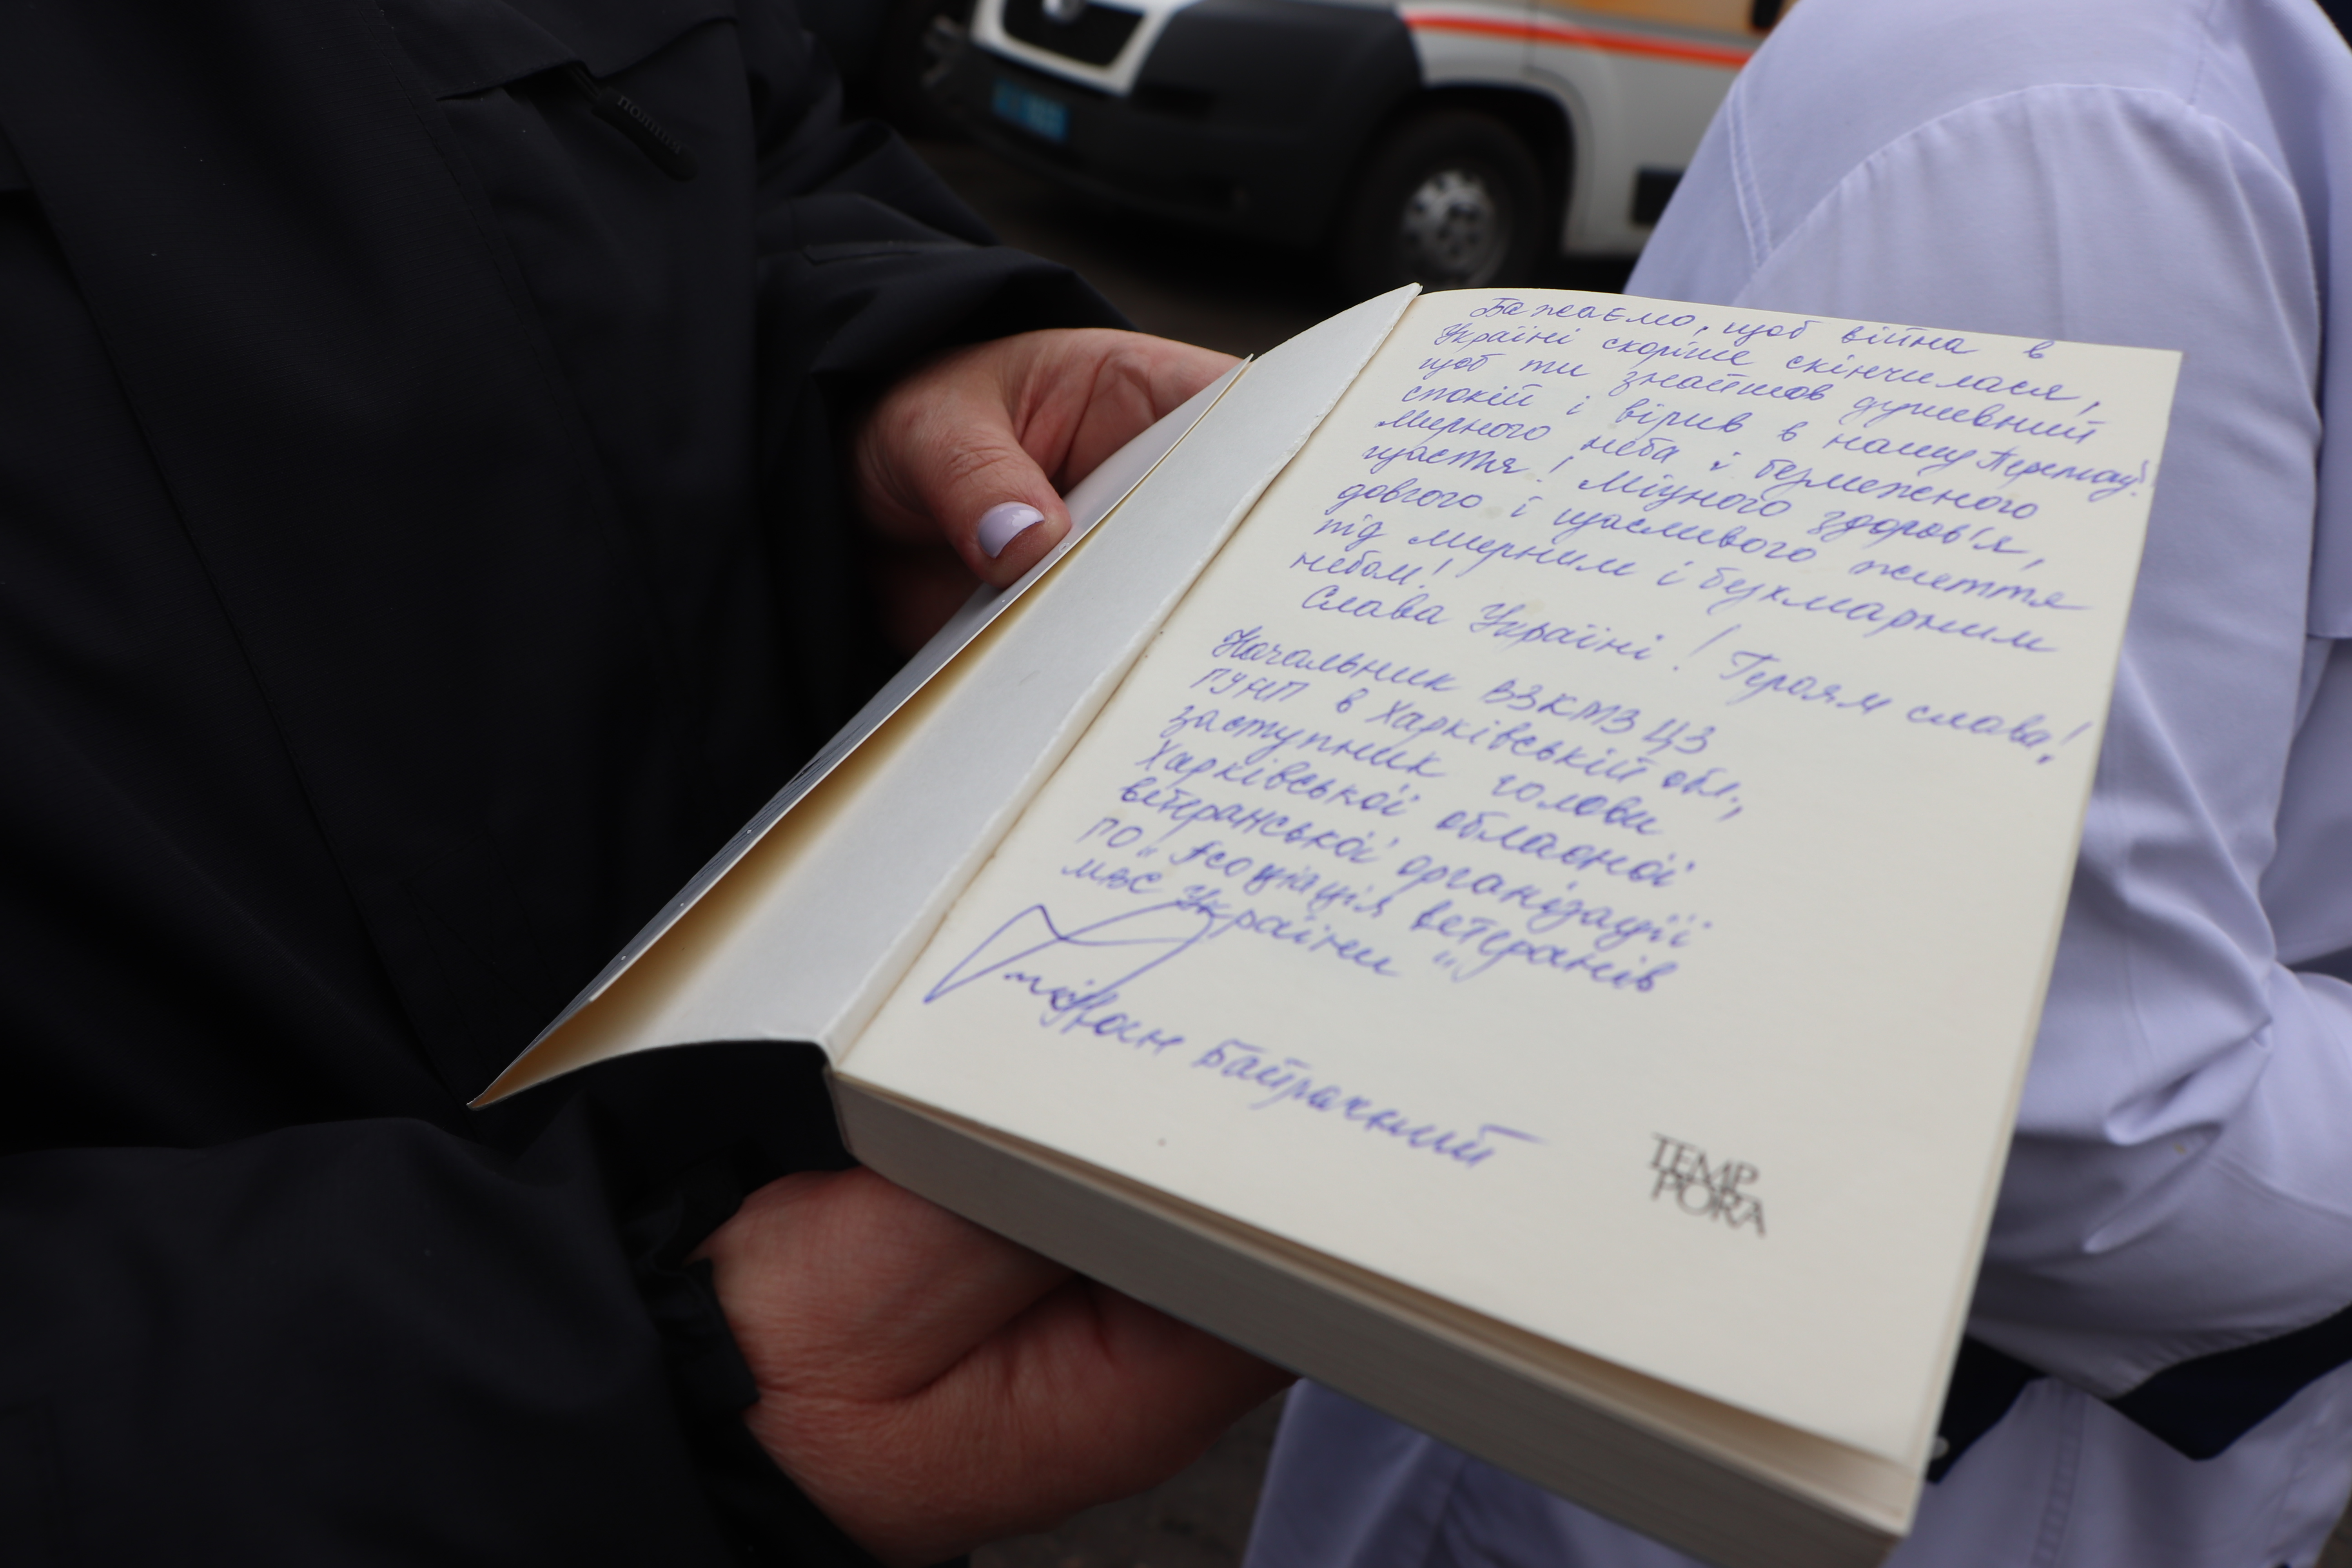 поліція
Бажаємо, щоб війна в
Україні скоріше скінчилася,
щоб ти знайшов душевний
спокій і вірив в нашу Перемогу!
Мирного неба і безмежного
щастя! Міцного здоров'я,
довгого і щасливого життя
під мирним і безхмарним
небом!
Слава Україні! Героям слава!
Начальник ВЗКМЗ ЦЗ
ГУНП в Харківській обл.,
заступник голови
Харківської обласної
ветеранської організації
ГО "Асоціація ветеранів
МВС України"
Байрачний
TEMP
PORA